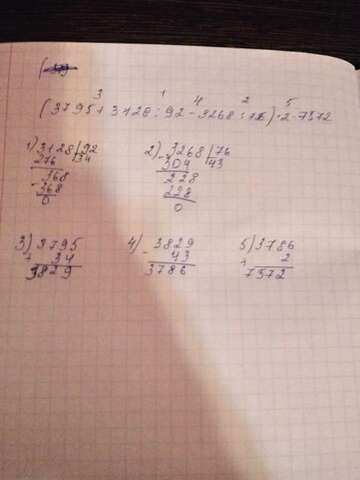 3 1 4 2 5
(3795+3128:92-3268:76)·2=7572
1) 3128|92 2) 3268|76
276 |34 304 |43
368 228
368 228
0 0
3) 3795 4) 3829 5) 3786
+ 34 - 43 × 2
3829 3786 7572